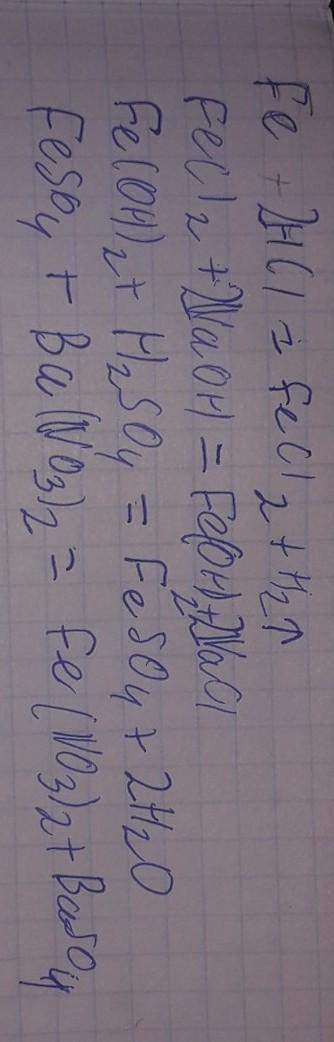 Fe + 2HCl = FeCl2 + H2↑
FeCl2 + 2NaOH = Fe(OH)2 + 2NaCl
Fe(OH)2 + H2SO4 = FeSO4 + 2H2O
FeSO4 + Ba(NO3)2 = Fe(NO3)2 + BaSO4